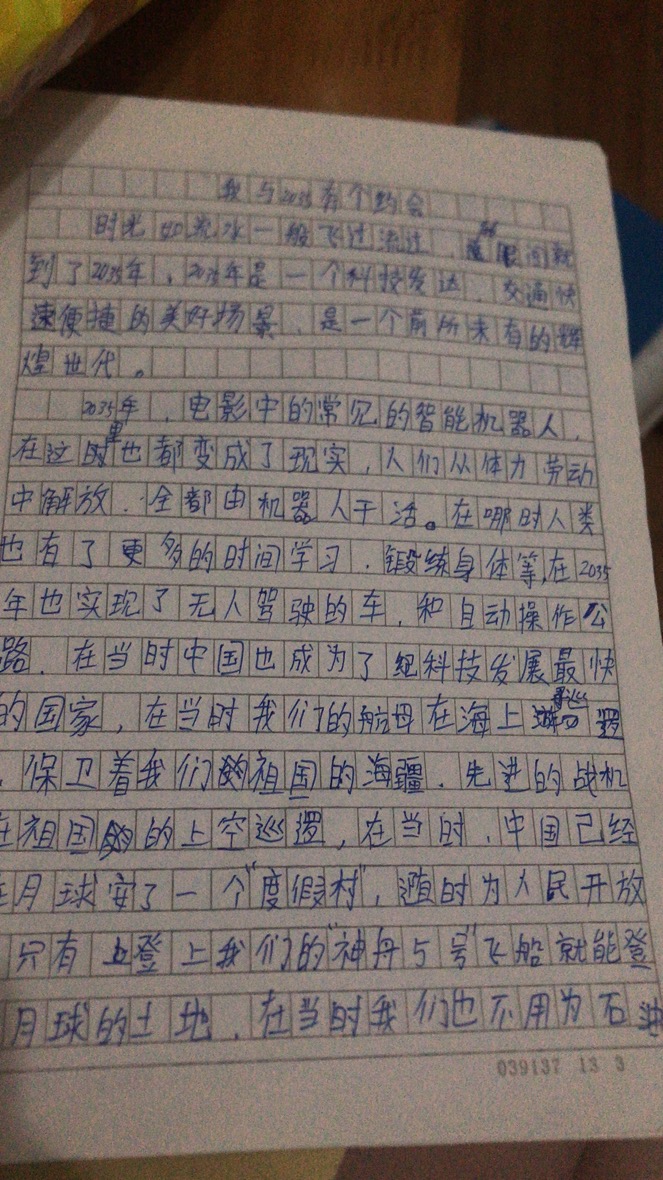 我与2035有个约会
时光如流水一般飞过流过，转眼间就
到了2035年，2035年是一个科技发达、交通快
速便捷的美好场景，是一个前所未有的辉
煌世代。
2035年，电影中的常见的智能机器人，
在这时里也都变成了现实，人们从体力劳动
中解放，全都由机器人干活。在哪时人类
也有了更多的时间学习，锻练身体等，在2035
年也实现了无人驾驶的车，和自动操作公
路、在当时中国也成为了纪科技发展最快
的国家，在当时我们的航母在海上巡逻
，保卫着我们的祖国的海疆，先进的战机
在祖国的上空巡逻，在当时，中国已经
在月球安了一个"度假村"，随时为人民开放
只有登上我们的"神舟5号"飞船就能登
月球的土地，在当时我们也不用为石油
039137 13 3